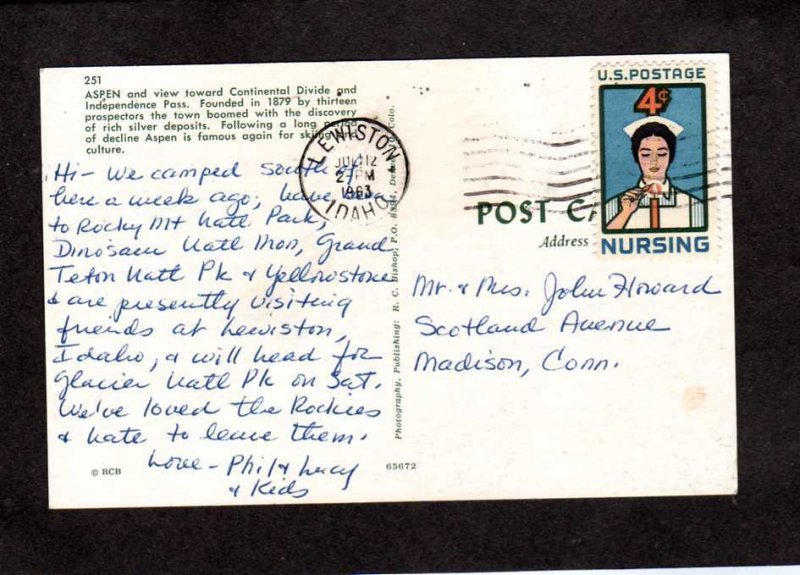 251
ASPEN and view toward Continental Divide and
Independence Pass. Founded in 1879 by thirteen
prospectors the town boomed with the discovery
of rich silver deposits. Following a long period
of decline Aspen is famous again for skiing and
culture.
Hi - We camped south of
here a week ago, have
to Rocky Mt Natl Park,
Dinosaur Natl Mon, Grand
Teton Natl Pk & Yellowstone
& are presently visiting
friends at Lewiston,
Idaho, & will head for
Glacier Natl Pk on Sat.
We've loved the Rockies
& hate to leave them.
Love - Phil & Lucy
& Kids
© RCB
65672
Photography, Publishing: R. C. Bishop, P.O. Colo.
LEWISTON
JUL 12
2 PM
1963
IDAHO
U.S. POSTAGE
4¢
NURSING
POST CA
Address
Mr. & Mrs. John Howard
Scotland Avenue
Madison, Conn.